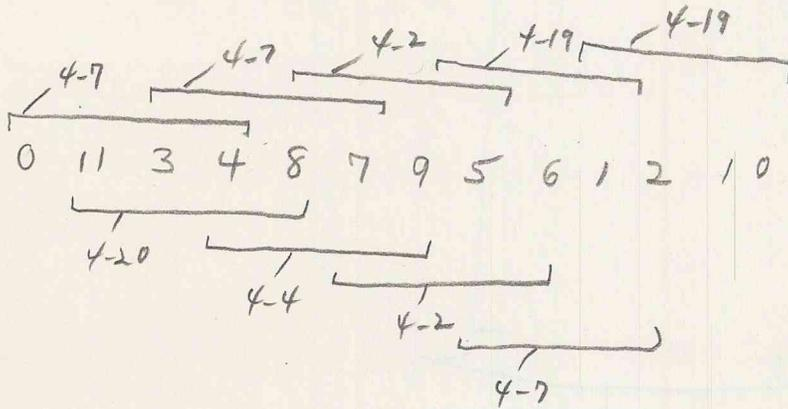 4-19
4-2 4-19
4-7 4-7
0 11 3 4 8 7 9 5 6 1 2 10
4-20
4-4
4-2
4-7